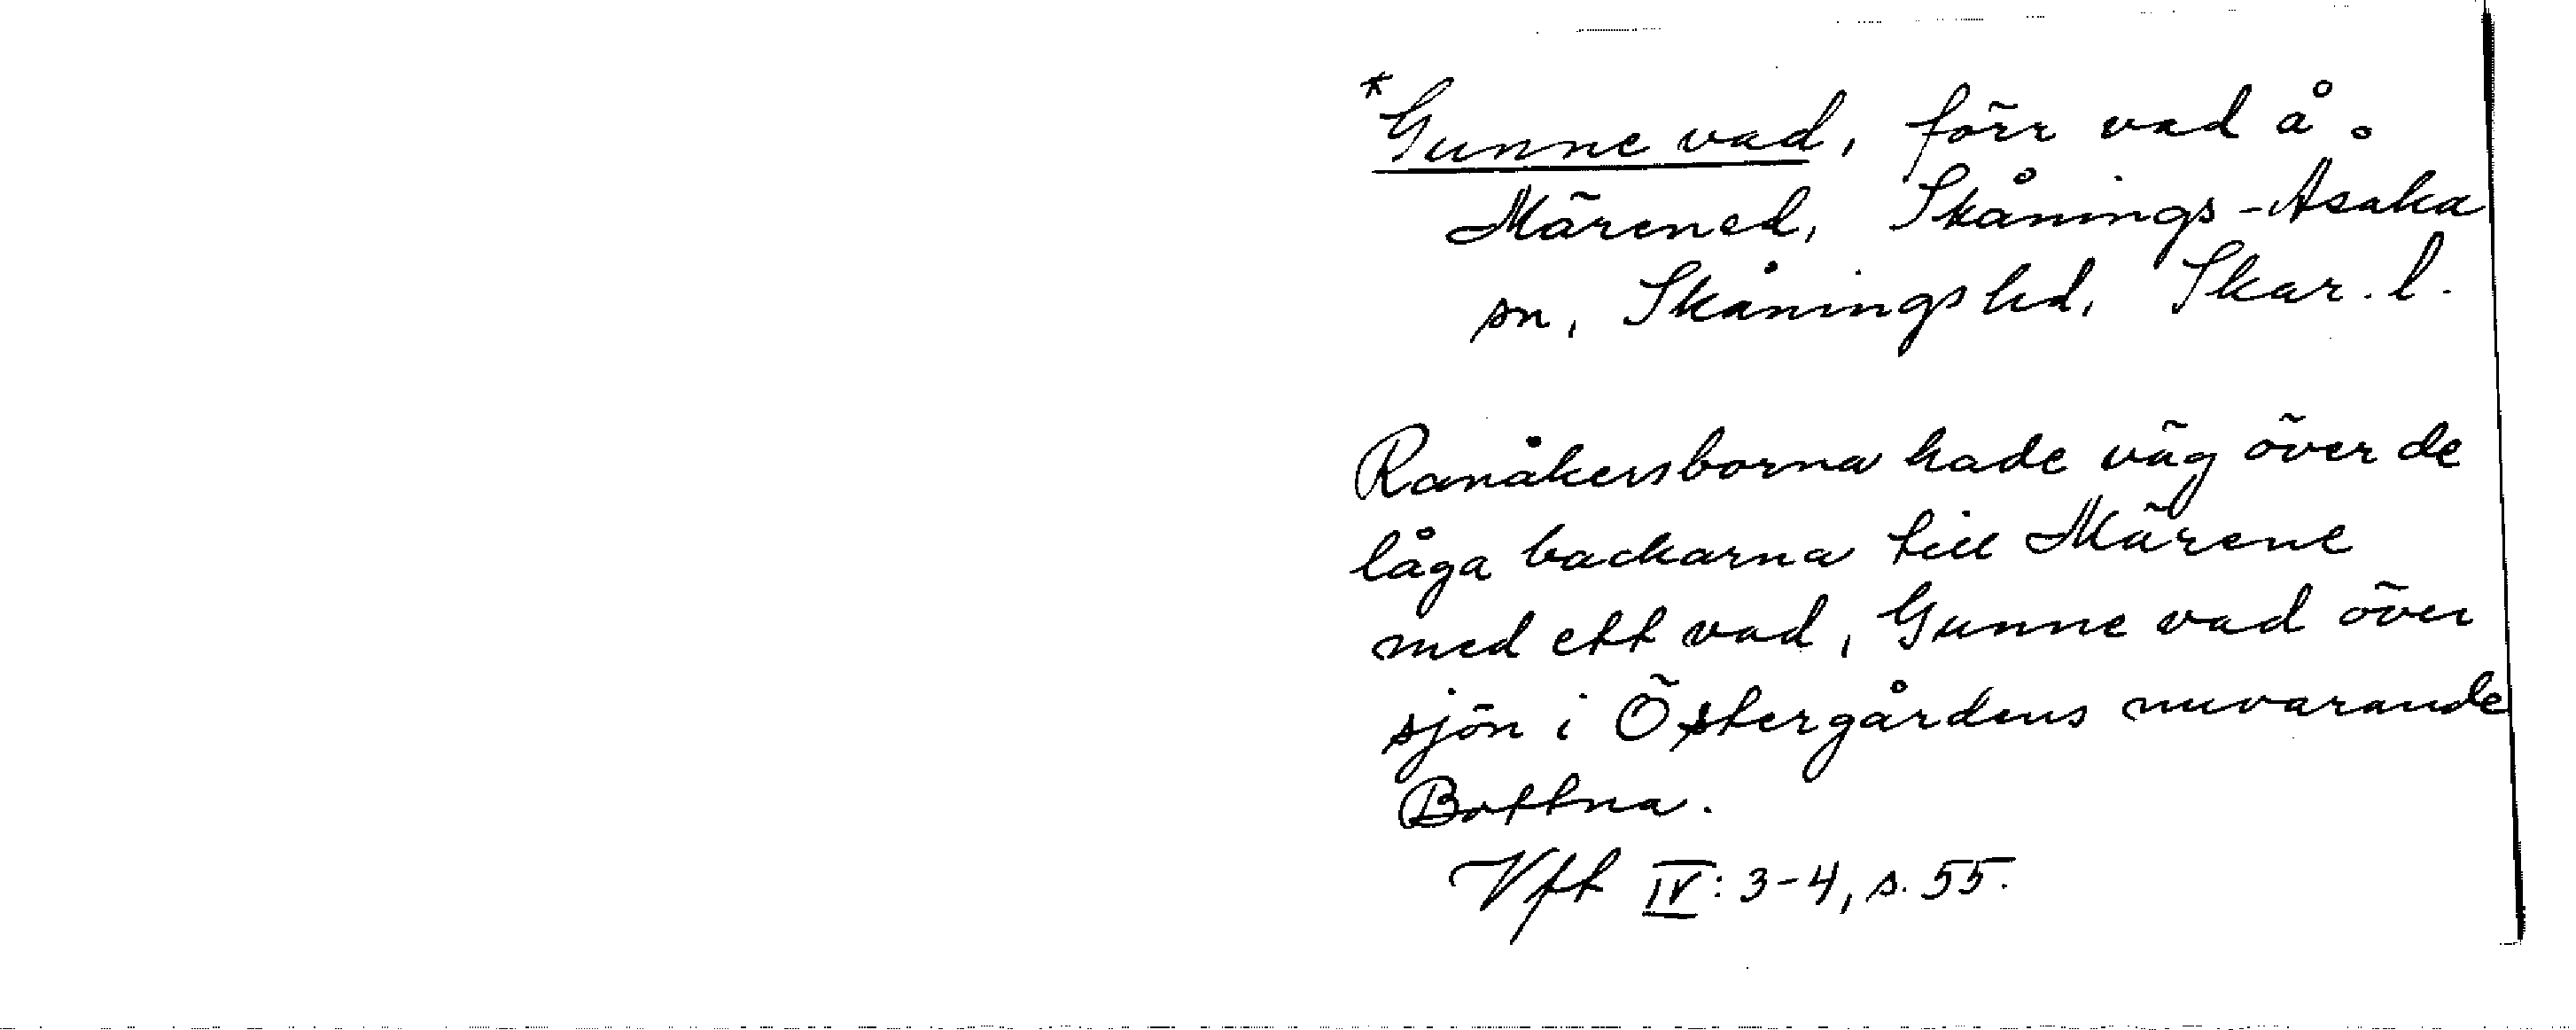 *Gunne vad, förr vad å.
Märened, Skånings-Asaka
sn, Skånings hd, Skar. l.
Ranåkersborna hade väg över de
låga backarna till Märene
med ett vad, Gunne vad över
sjön i Östergårdens nuvarande
Bottna.
Vft IV: 3-4, s. 55.